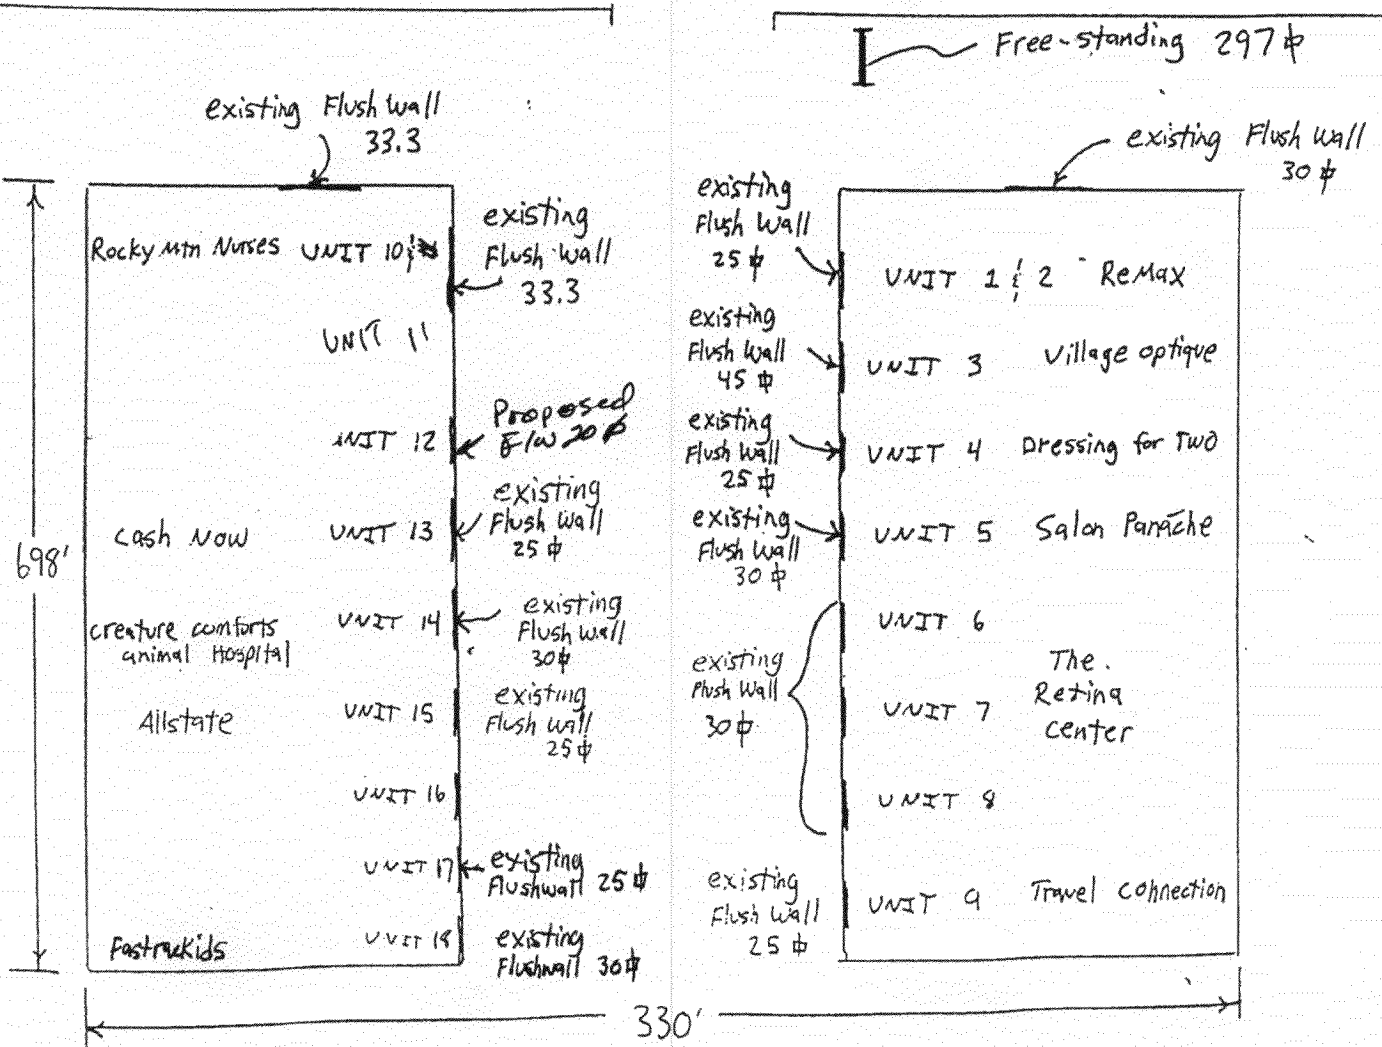 Free-standing 297 ⌷
existing Flush Wall
33.3
existing Flush Wall
30 ⌷
698'
Rocky Mtn Nurses UNIT 10 &
existing
Flush Wall
33.3
UNIT 11
UNIT 12
Proposed
F/W 20 ⌷
Cash Now UNIT 13
existing
Flush Wall
25 ⌷
creature comforts
animal Hospital
UNIT 14
existing
Flush Wall
30 ⌷
Allstate
UNIT 15
existing
Flush Wall
25 ⌷
UNIT 16
UNIT 17
existing
Flushwall 25 ⌷
Fastrackids
UNIT 18
existing
Flushwall 30 ⌷
existing
Flush Wall
25 ⌷
UNIT 1 & 2 ReMax
existing
Flush Wall
45 ⌷
UNIT 3 Village optique
existing
Flush Wall
25 ⌷
UNIT 4 Dressing for Two
existing
Flush Wall
30 ⌷
UNIT 5 Salon Panache
UNIT 6
existing
Flush Wall
30 ⌷
UNIT 7
The
Retina
Center
UNIT 8
existing
Flush Wall
25 ⌷
UNIT 9 Travel Connection
330'